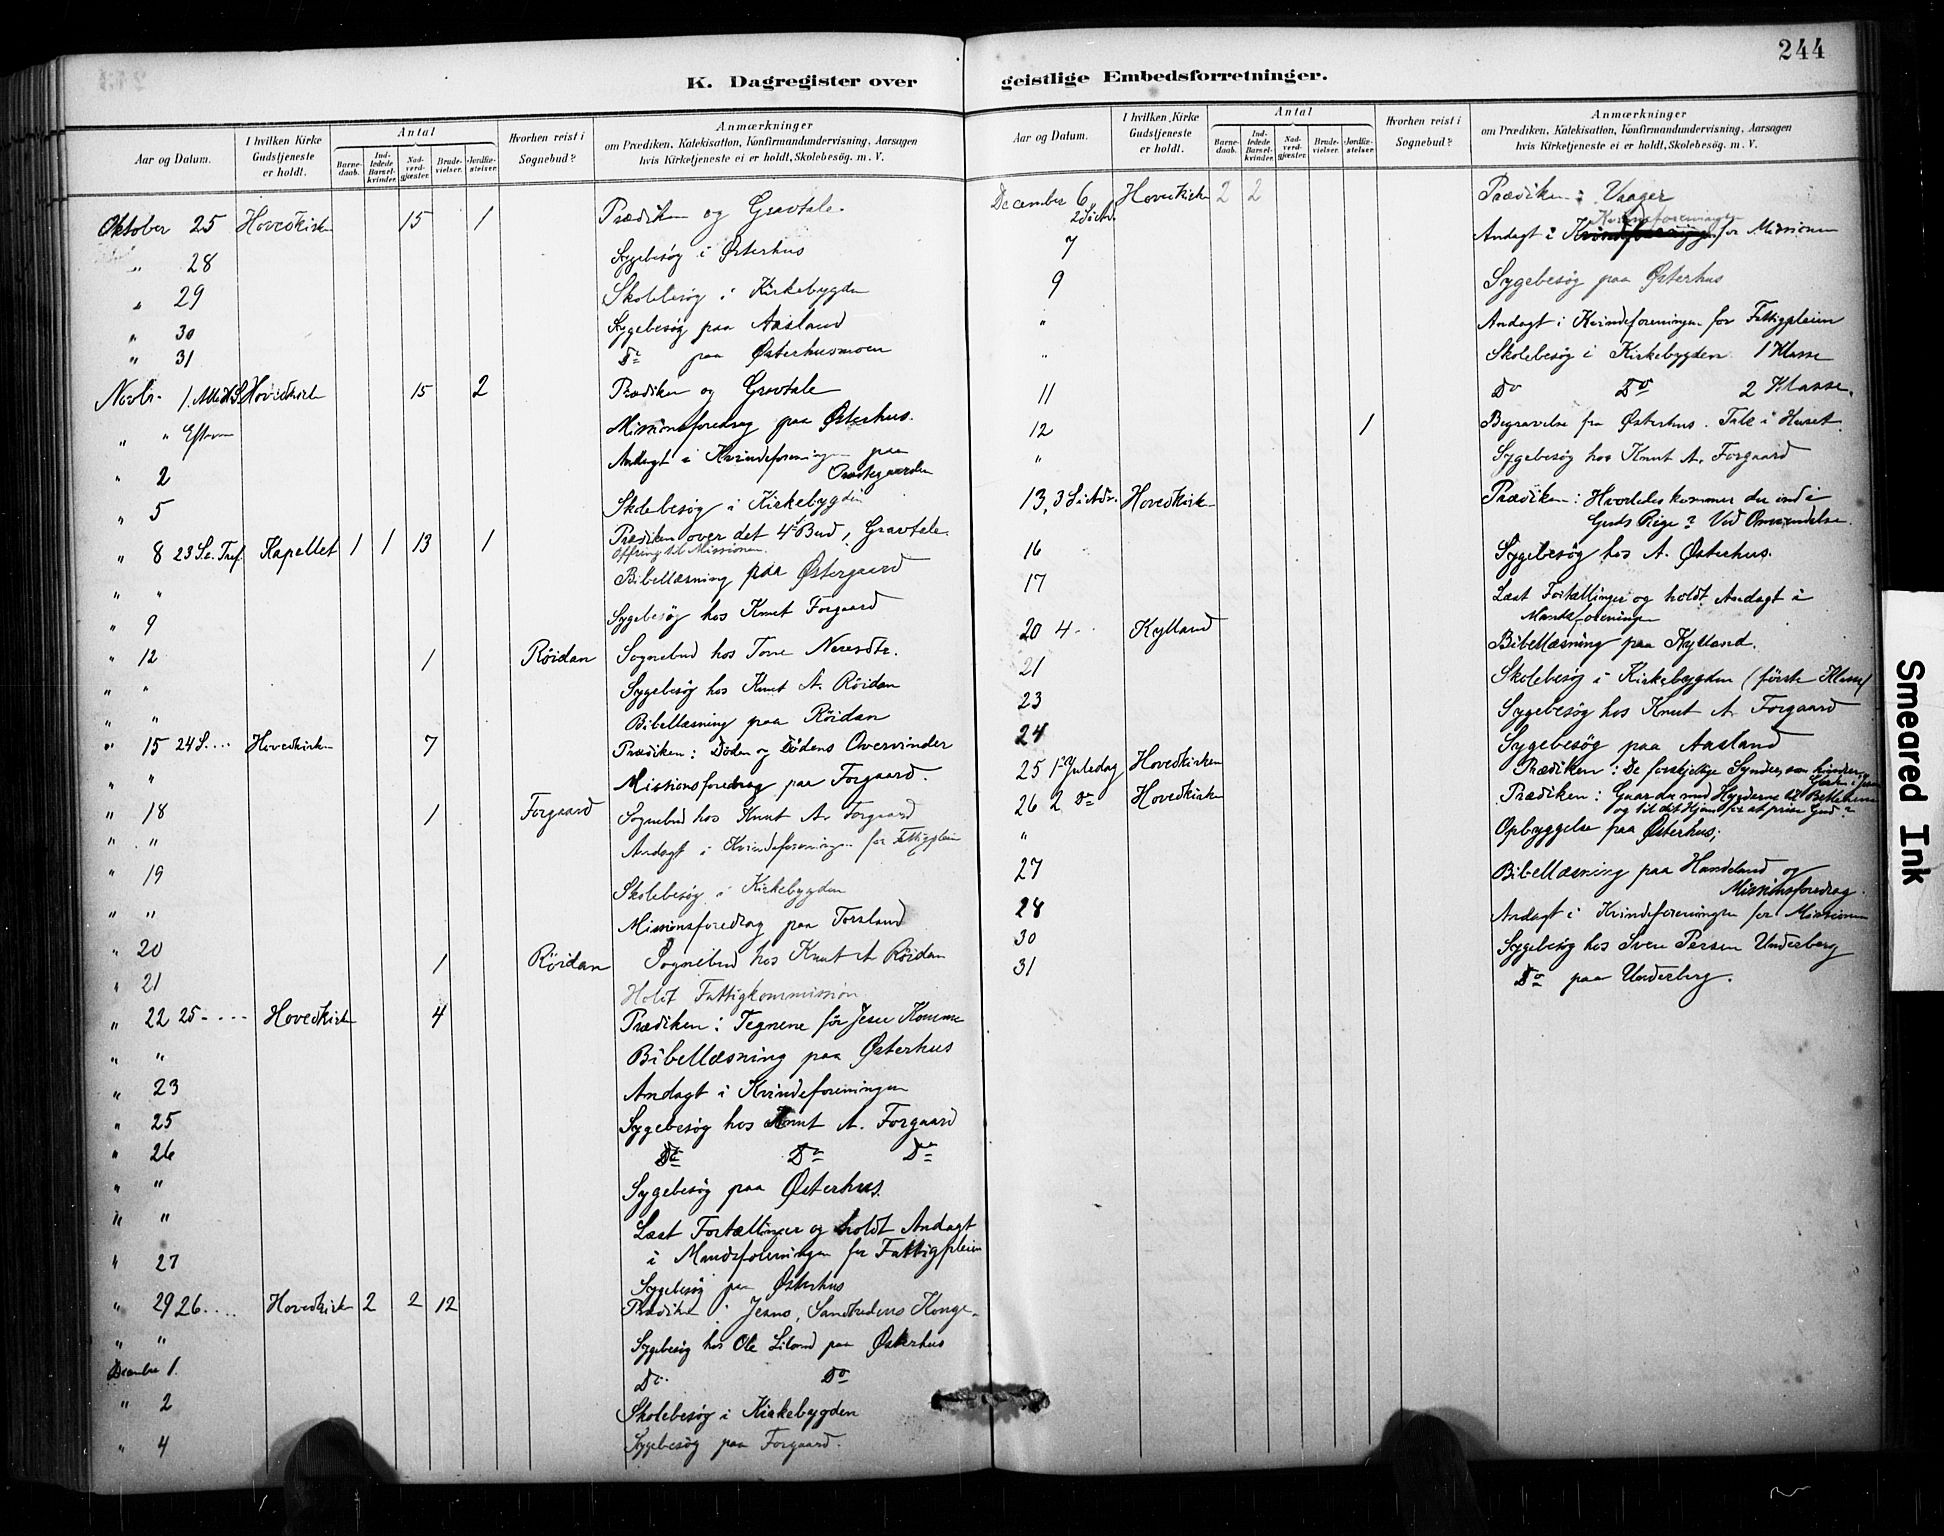 244
K. Dagregister over geistlige Embedsforretninger.
Aar og Datum.
I hvilken Kirke Gudstjeneste er holdt.
Antal
Barnedaab.
Indledede Barselkvinder.
Nadverdgjæster.
Brudevielser.
Jordfæstelser.
Hvorhen reist i Sognebud?
Anmærkninger
om Prædiken, Katekisation, Konfirmandundervisning, Aarsagen
hvis Kirketjeneste ei er holdt, Skolebesøg. m. V.
Oktober 25 Hovedkirken 15 1 Prædiken og Gravtale.
" 28 Sygebesøg i Østerhus
" 29 Skolebesøg i Kirkebygden
" 30 Sygebesøg paa Aasland
" 31 Do paa Østerhusmoen
Novbr. 1. Alle H. S. Hovedkirken 15 2 Prædiken og Gravtale
" " Efterm Missionsforedrag paa Østerhus.
" 2 Andagt i Kvindeforeningen paa
Præstegaarden
" 5 Skolebesøg i Kirkebygden
" 8 23 S. e. Tref. Kapellet 1 1 13 1 Prædiken over det 4de Bud, Gravtale.
Offring til Missionen.
" " Bibellæsning paa Østergaard
" 9 Sygebesøg hos Knut Forgaard
" 12 1 Röidan Sognebud hos Tone
" " Sygebesøg hos Knut A. Röidan
" " Bibellæsning paa Röidan
" 15 24 S.... Hovedkirken 7 Prædiken: Döden og Dödens Overvinder
" " Missionsforedrag paa Forgaard.
" 18 1 Forgaard Sognebud hos Knut A. Forgaard
" " Andagt i Kvindeforeningen for Fattigpleien
" 19 Skolebesøg i Kirkebygden
" " Missionsforedrag paa Torsland
" 20 1 Röidan Sognebud hos Knut A Röidan
" 21 Holdt Fattigkommission
" 22 25 - .... Hovedkirken 4 Prædiken: Tegnene för Jesu Komme
" " Bibellæsning paa Østerhus
" 23 Andagt i Kvindeforeningen
" 25 Sygebesøg hos Knut A. Forgaard
" 26 Do Do Do
" " Sygebesøg paa Østerhus.
" " Læst Fortællinger og holdt Andagt
i Mandsforeningen for Fattigpleien
" 27 Sygebesøg paa Østerhus
" 29 26.... Hovedkirken 2 2 12 Prædiken: Jesus, Sandhedens Konge.
" " Sygebesøg hos Ole Liland paa Østerhus
December 1. Do Do
" 2 Skolebesøg i Kirkebygden
" 4 Sygebesøg paa Forgaard.
Aar og Datum.
I hvilken Kirke Gudstjeneste er holdt.
Antal
Barnedaab.
Indledede Barselkvinder.
Nadverdgjæster.
Brudevielser.
Jordfæstelser.
Hvorhen reist i Sognebud?
Anmærkninger
om Prædiken, Katekisation, Konfirmandundervisning, Aarsagen
hvis Kirketjeneste ei er holdt, Skolebesøg. m. V.
December 6 2 S i Adv. Hovedkirken 2 2 Prædiken: Vaager
7 Andagt i Kvindeforeningen for Missionen
9 Sygebesøg paa Østerhus
" Andagt i Kvindeforeningen for Fattigpleien
" Skolebesøg i Kirkebygden 1 Klasse
11 Do Do 2 Klasse.
12 1 Begravelse fra Østerhus. Tale i Huset.
" Sygebesøg hos Knut A. Forgaard
13, 3 S i Adv. Hovedkirken Prædiken: Hvorledes kommer du ind i
Guds Rige? Ved Omvendelse.
16 Sygebesøg hos A. Østerhus.
17 Læst Fortællinger og holdt Andagt i
Mandsforeningen
20 4 - .. Kylland Bibellæsning paa Kylland.
21 Skolebesøg i Kirkebygden (første Klasse)
23 Sygebesøg hos Knut A. Forgaard
24 Sygebesøg paa Aasland
25 1ste Juledag Hovedkirken Prædiken: De forskjellige Synder, som hindrer
26 2 Do Hovedkirken Prædiken: Gaar du med Hyrderne til Bethlehem
og til dit Hjem for at prise Gud?
" Opbyggelse paa Østerhus;
27 Bibellæsning paa Handeland og
Missionsforedrag.
28 Andagt i Kvindeforeningen for Missionen
30 Sygebesøg hos Sven Persen Underberg
31 Do paa Underberg.
Smeared Ink